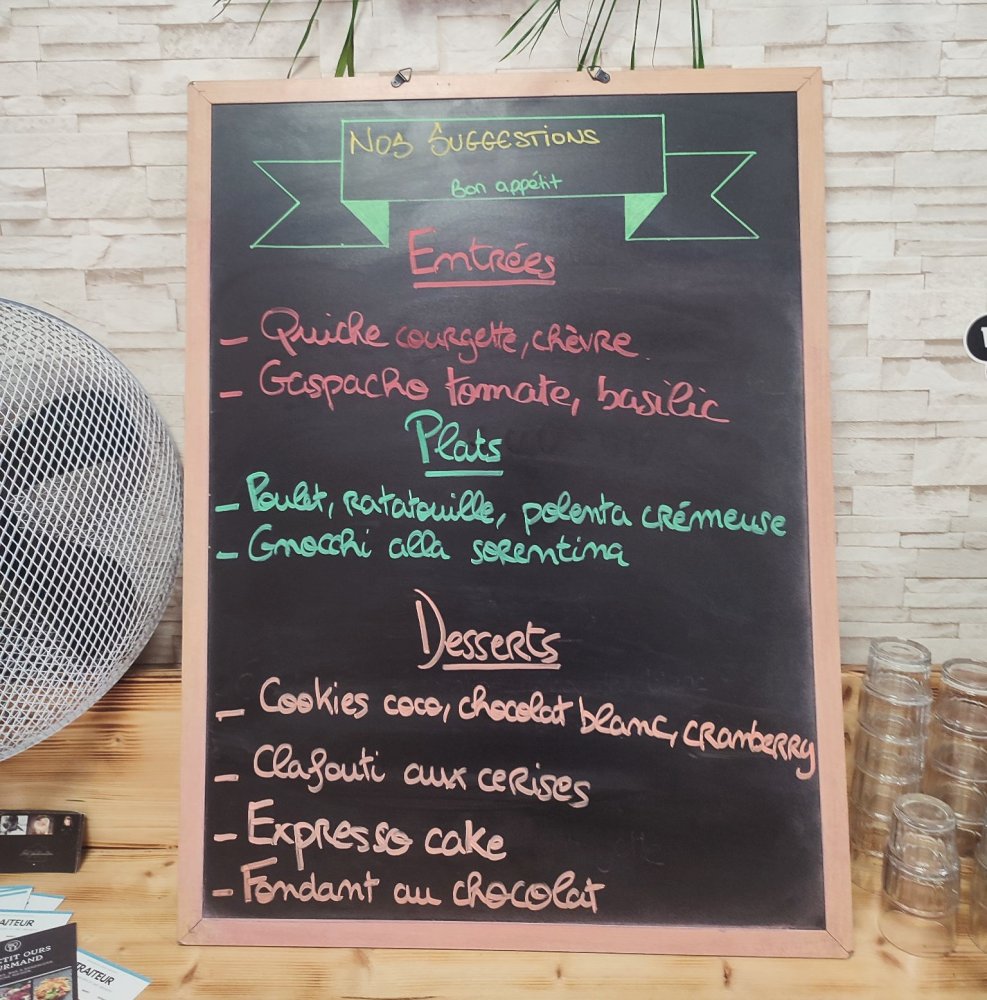 Nos Suggestions
Bon appétit
Entrées
- Quiche courgette, chèvre
- Gaspacho tomate, basilic
Plats
- Poulet, ratatouille, polenta crémeuse
- Gnocchi alla sorentina
Desserts
- Cookies coco, chocolat blanc, cranberry
- Clafouti aux cerises
- Expresso cake
- Fondant au chocolat
AITEUR
TIT OURS
RMAND
TRAITEUR